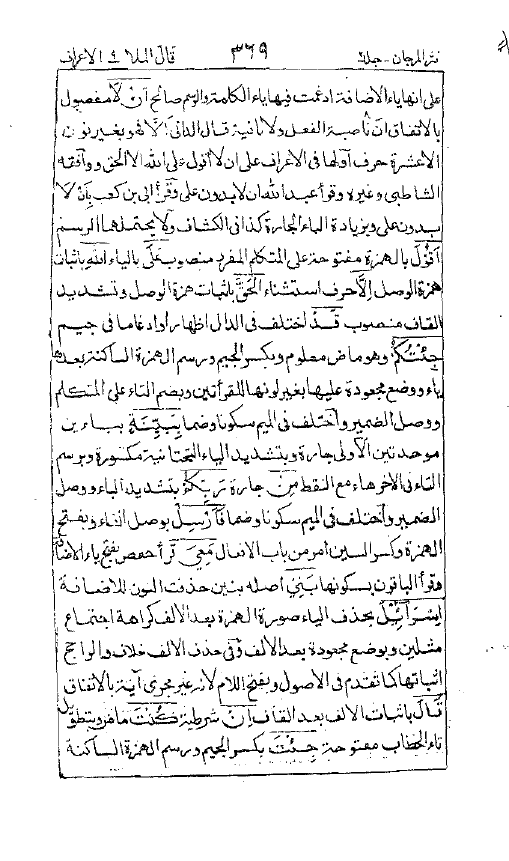 نثر المرجان - جلد ٢ ٣٦٩ قال الملأ ٩ الاعراف
على انها ياء الاضافة ادغمت فيها ياء الكلمة والرسم صالح أَنْ لَّا مفصول
بالاتفاق ان ناصبة الفعل ولا نافية قال الدانى الا هو بغير نون
الا عشرة حرف اولها فى الاعراف على ان لا اقول على الله الا الحق ووافقه
الشاطبى وغيره وقرأ عبد الله ان لا بدون على وقرأ ابى بن كعب بأن لا
بدون على وبزيادة الباء الجارة كذا فى الكشاف ولا يحتملها الرسم
أَقُوْلَ بالهمزة مفتوحة على المتكلم المفرد منصوب عَلَى بالياء اللهِ باثبات
همزة الوصل إِلَّا حرف استثناء الْحَقَّ باثبات همزة الوصل وتشديد
القاف منصوب قَدْ اختلف فى الدال اظهارا وادغاما فى جيم
جِئْتُكُمْ وهو ماض معلوم وبكسر الجيم ورسم الهمزة الساكنة بعدها
ياء ووضع مجعودة عليها بغير لونها للقرأتين وبضم التاء على المتكلم
ووصل الضمير واختلف فى الميم سكونا وضما بِبَيِّنَةٍ بباءين
موحدتين الاولى جارة وبتشديد الياء التحتانية مكسورة وبرسم
التاء فى الاخر هاء مع النقط مِنْ جارة رَبِّكُمْ بتشديد الباء ووصل
الضمير واختلف فى الميم سكونا وضما فَأَرْسِلْ بوصل الفاء وبفتح
الهمزة وكسر السين امر من باب الافعال مَعِىَ قرأ حفص بفتح ياء الاضافة
وقرأ الباقون بسكونها بَنِى اصله بنين حذفت النون للاضافة
إِسْرَائِيْلَ بحذف الياء صورة الهمزة بعد الالف كراهة اجتماع
مثلين وبوضع مجعودة بعد الالف وفى حذف الالف خلاف والراجح
اثباتها كما تقدم فى الاصول وبفتح اللام لانه غير مجرى آية بالاتفاق
قَالَ باثبات الالف بعد القاف إِنْ شرطية كُنْتَ ماض وبتطويل
تاء الخطاب مفتوحة جِئْتَ بكسر الجيم ورسم الهمزة الساكنة